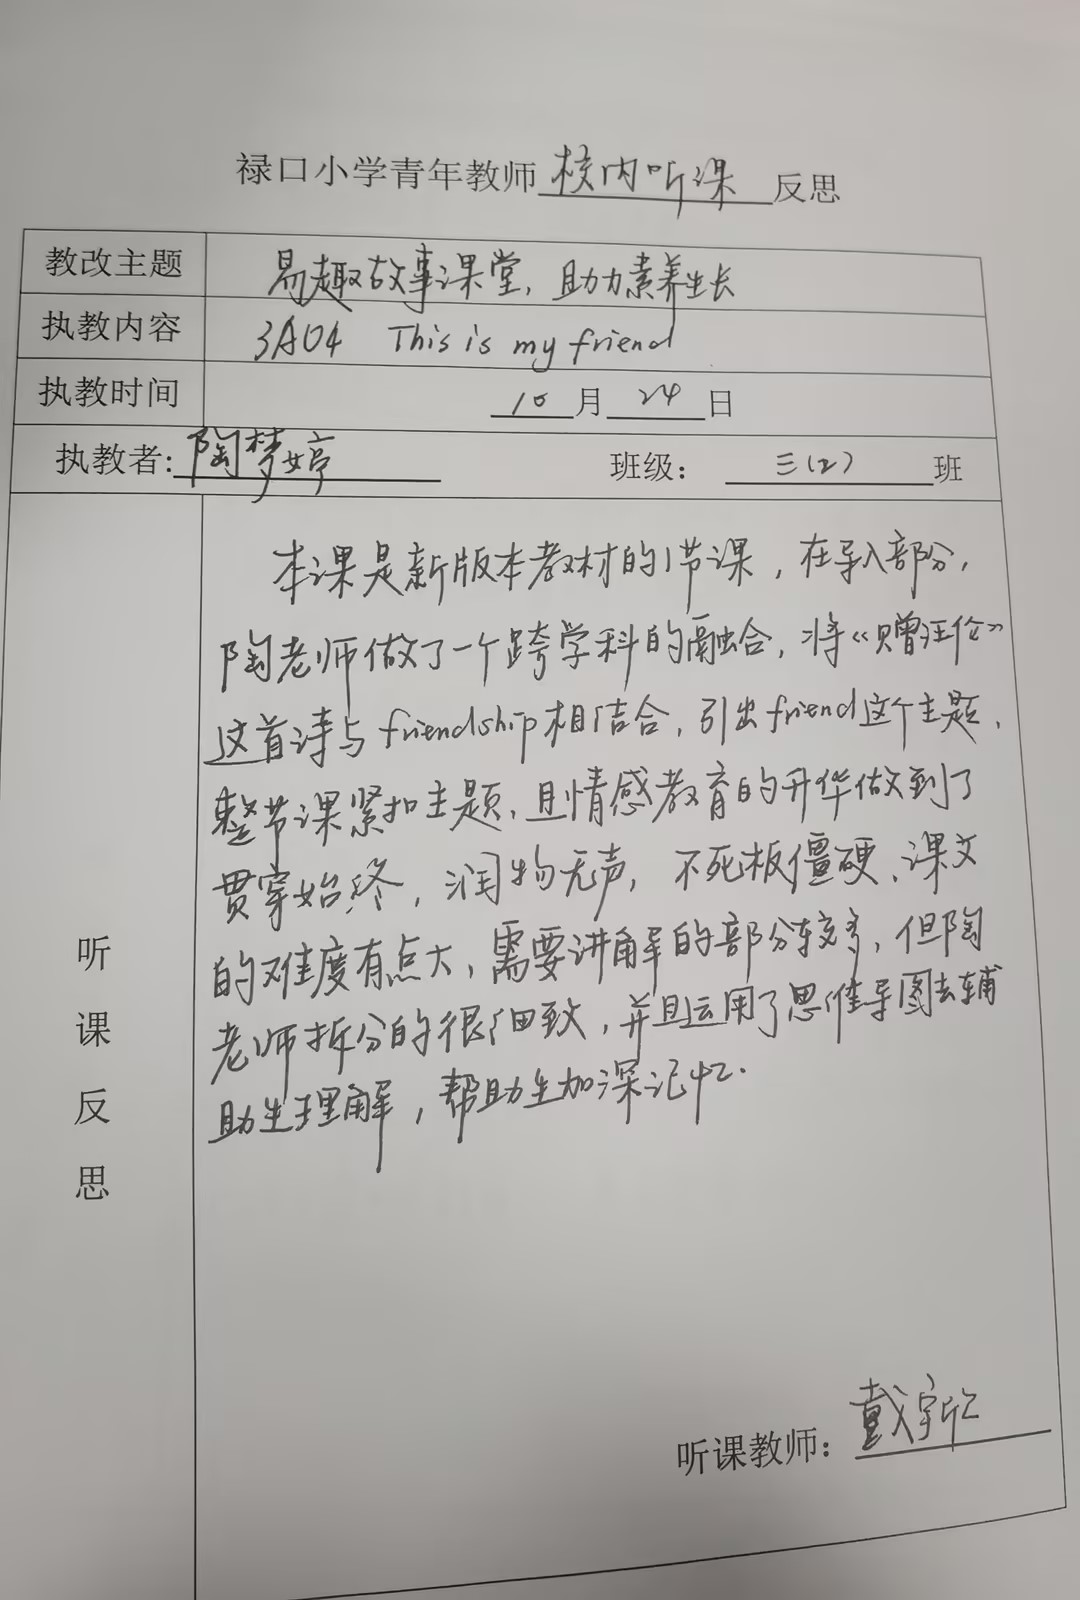 禄口小学青年教师校内听课反思
教改主题 易趣故事课堂，助力素养生长
执教内容 3AU4 This is my friend
执教时间 10月24日
执教者：陶梦婷 班级：三（2）班
听课反思
本课是新版本教材的1节课，在导入部分，
陶老师做了一个跨学科的融合，将《赠汪伦》
这首诗与friendship相结合，引出friend这个主题，
整节课紧扣主题，且情感教育的升华做到了
贯穿始终，润物无声，不死板僵硬、课文
的难度有点大，需要讲解的部分较多，但陶
老师拆分的很细致，并且运用了思维导图去辅
助生理解，帮助生加深记忆.
听课教师：戴